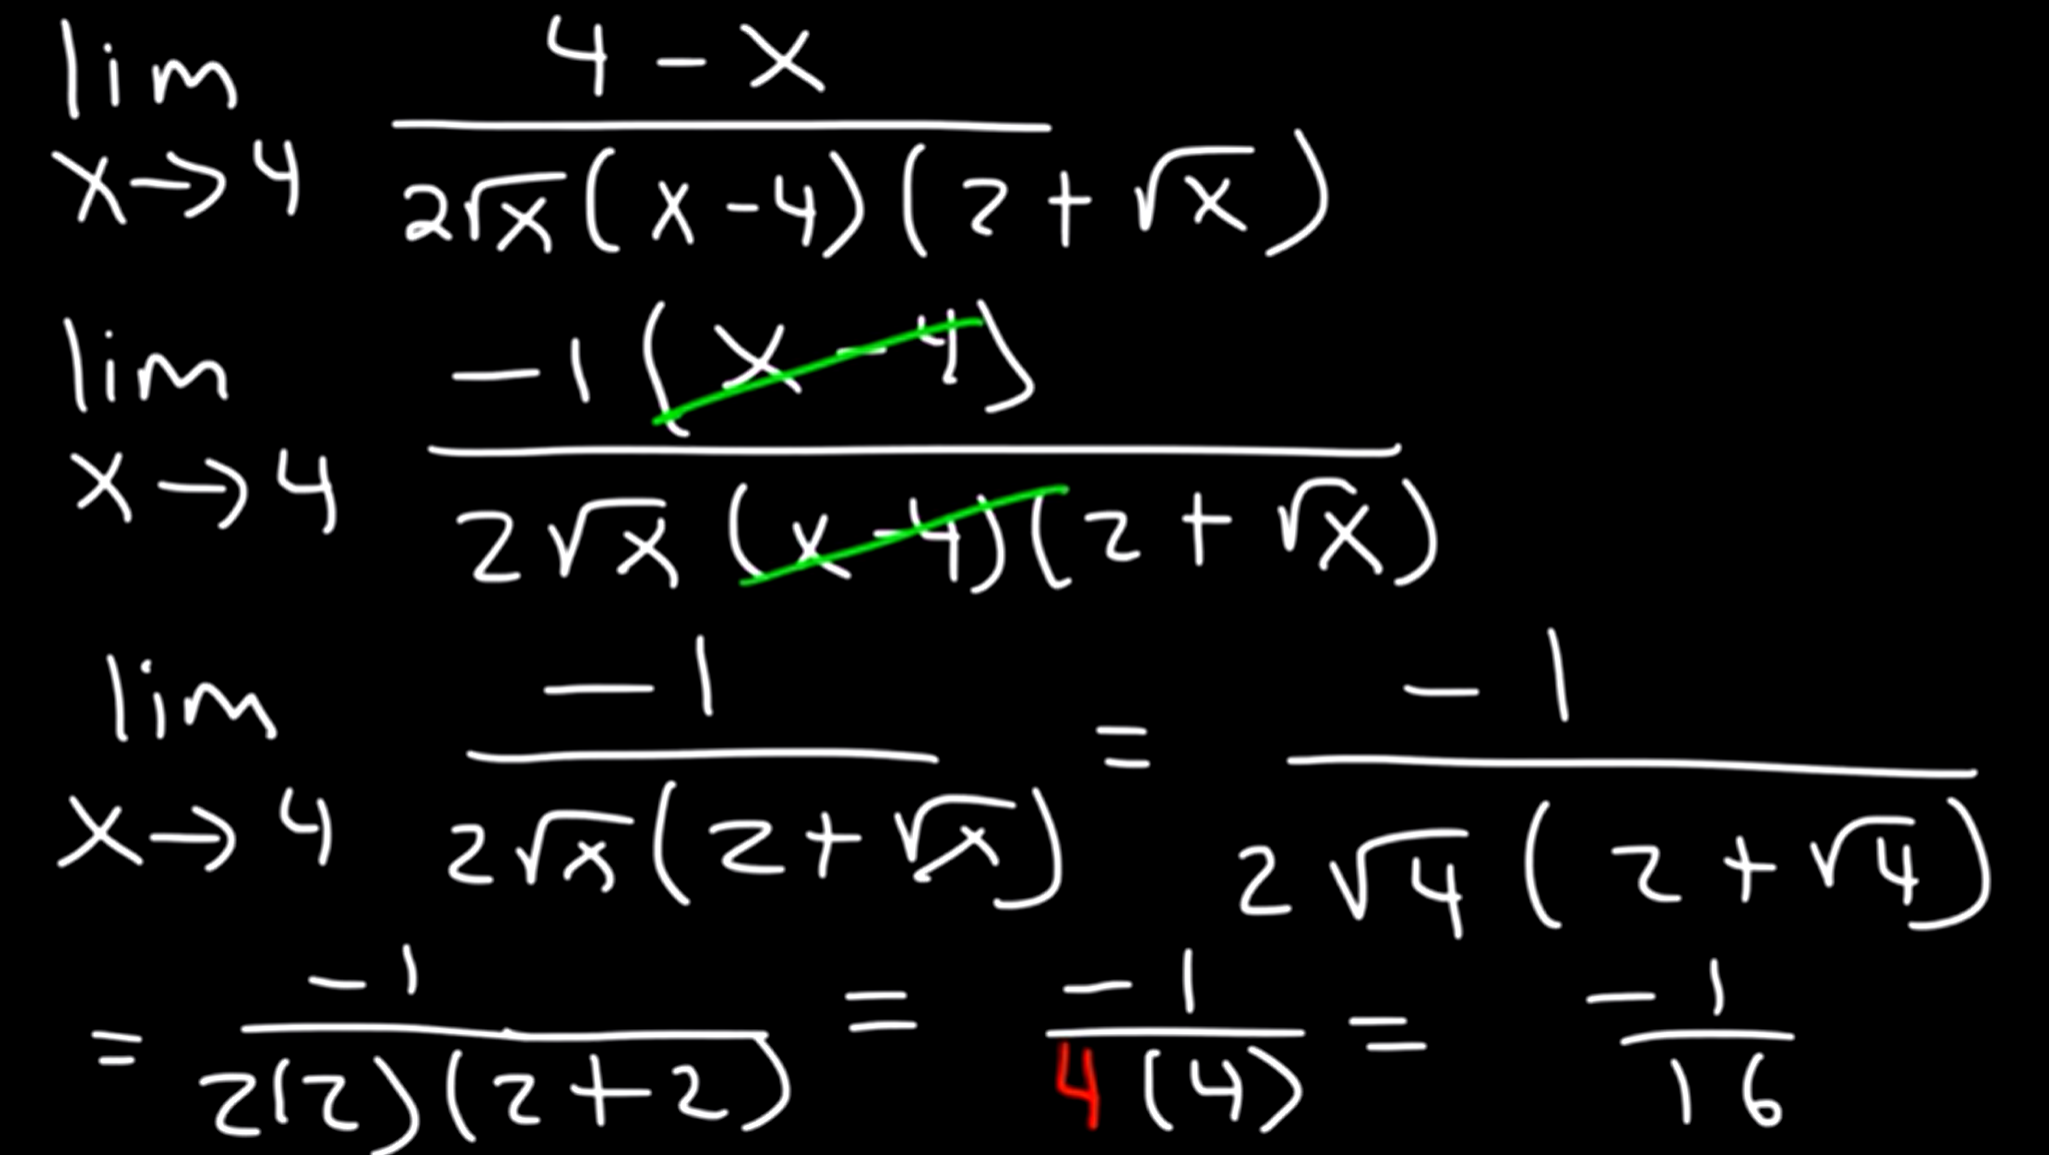 lim x→4 (4 - x) / (2√x (x - 4)(2 + √x))
lim x→4 (-1(x - 4)) / (2√x (x - 4)(2 + √x))
lim x→4 (-1) / (2√x (2 + √x)) = (-1) / (2√4 (2 + √4))
= (-1) / (2(2)(2 + 2)) = (-1) / (4(4)) = (-1) / 16